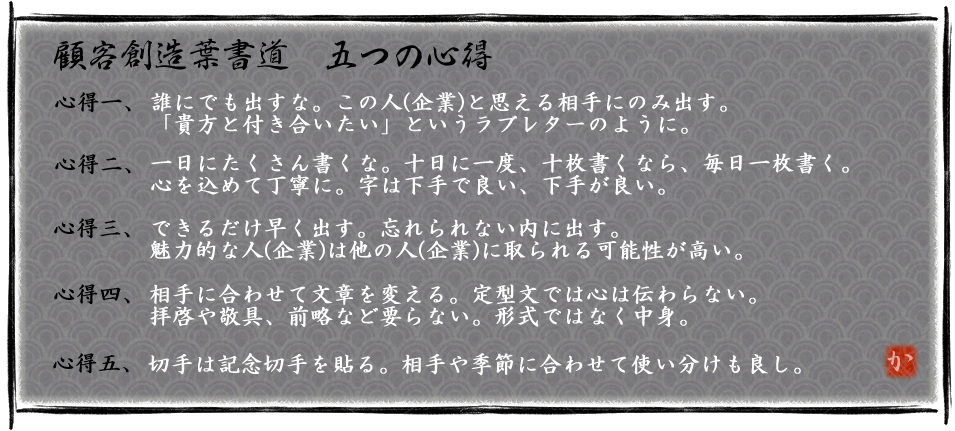 顧客創造葉書道　五つの心得
心得一、誰にでも出すな。この人(企業)と思える相手にのみ出す。
「貴方と付き合いたい」というラブレターのように。
心得二、一日にたくさん書くな。十日に一度、十枚書くなら、毎日一枚書く。
心を込めて丁寧に。字は下手で良い、下手が良い。
心得三、できるだけ早く出す。忘れられない内に出す。
魅力的な人(企業)は他の人(企業)に取られる可能性が高い。
心得四、相手に合わせて文章を変える。定型文では心は伝わらない。
拝啓や敬具、前略など要らない。形式ではなく中身。
心得五、切手は記念切手を貼る。相手や季節に合わせて使い分けも良し。
か